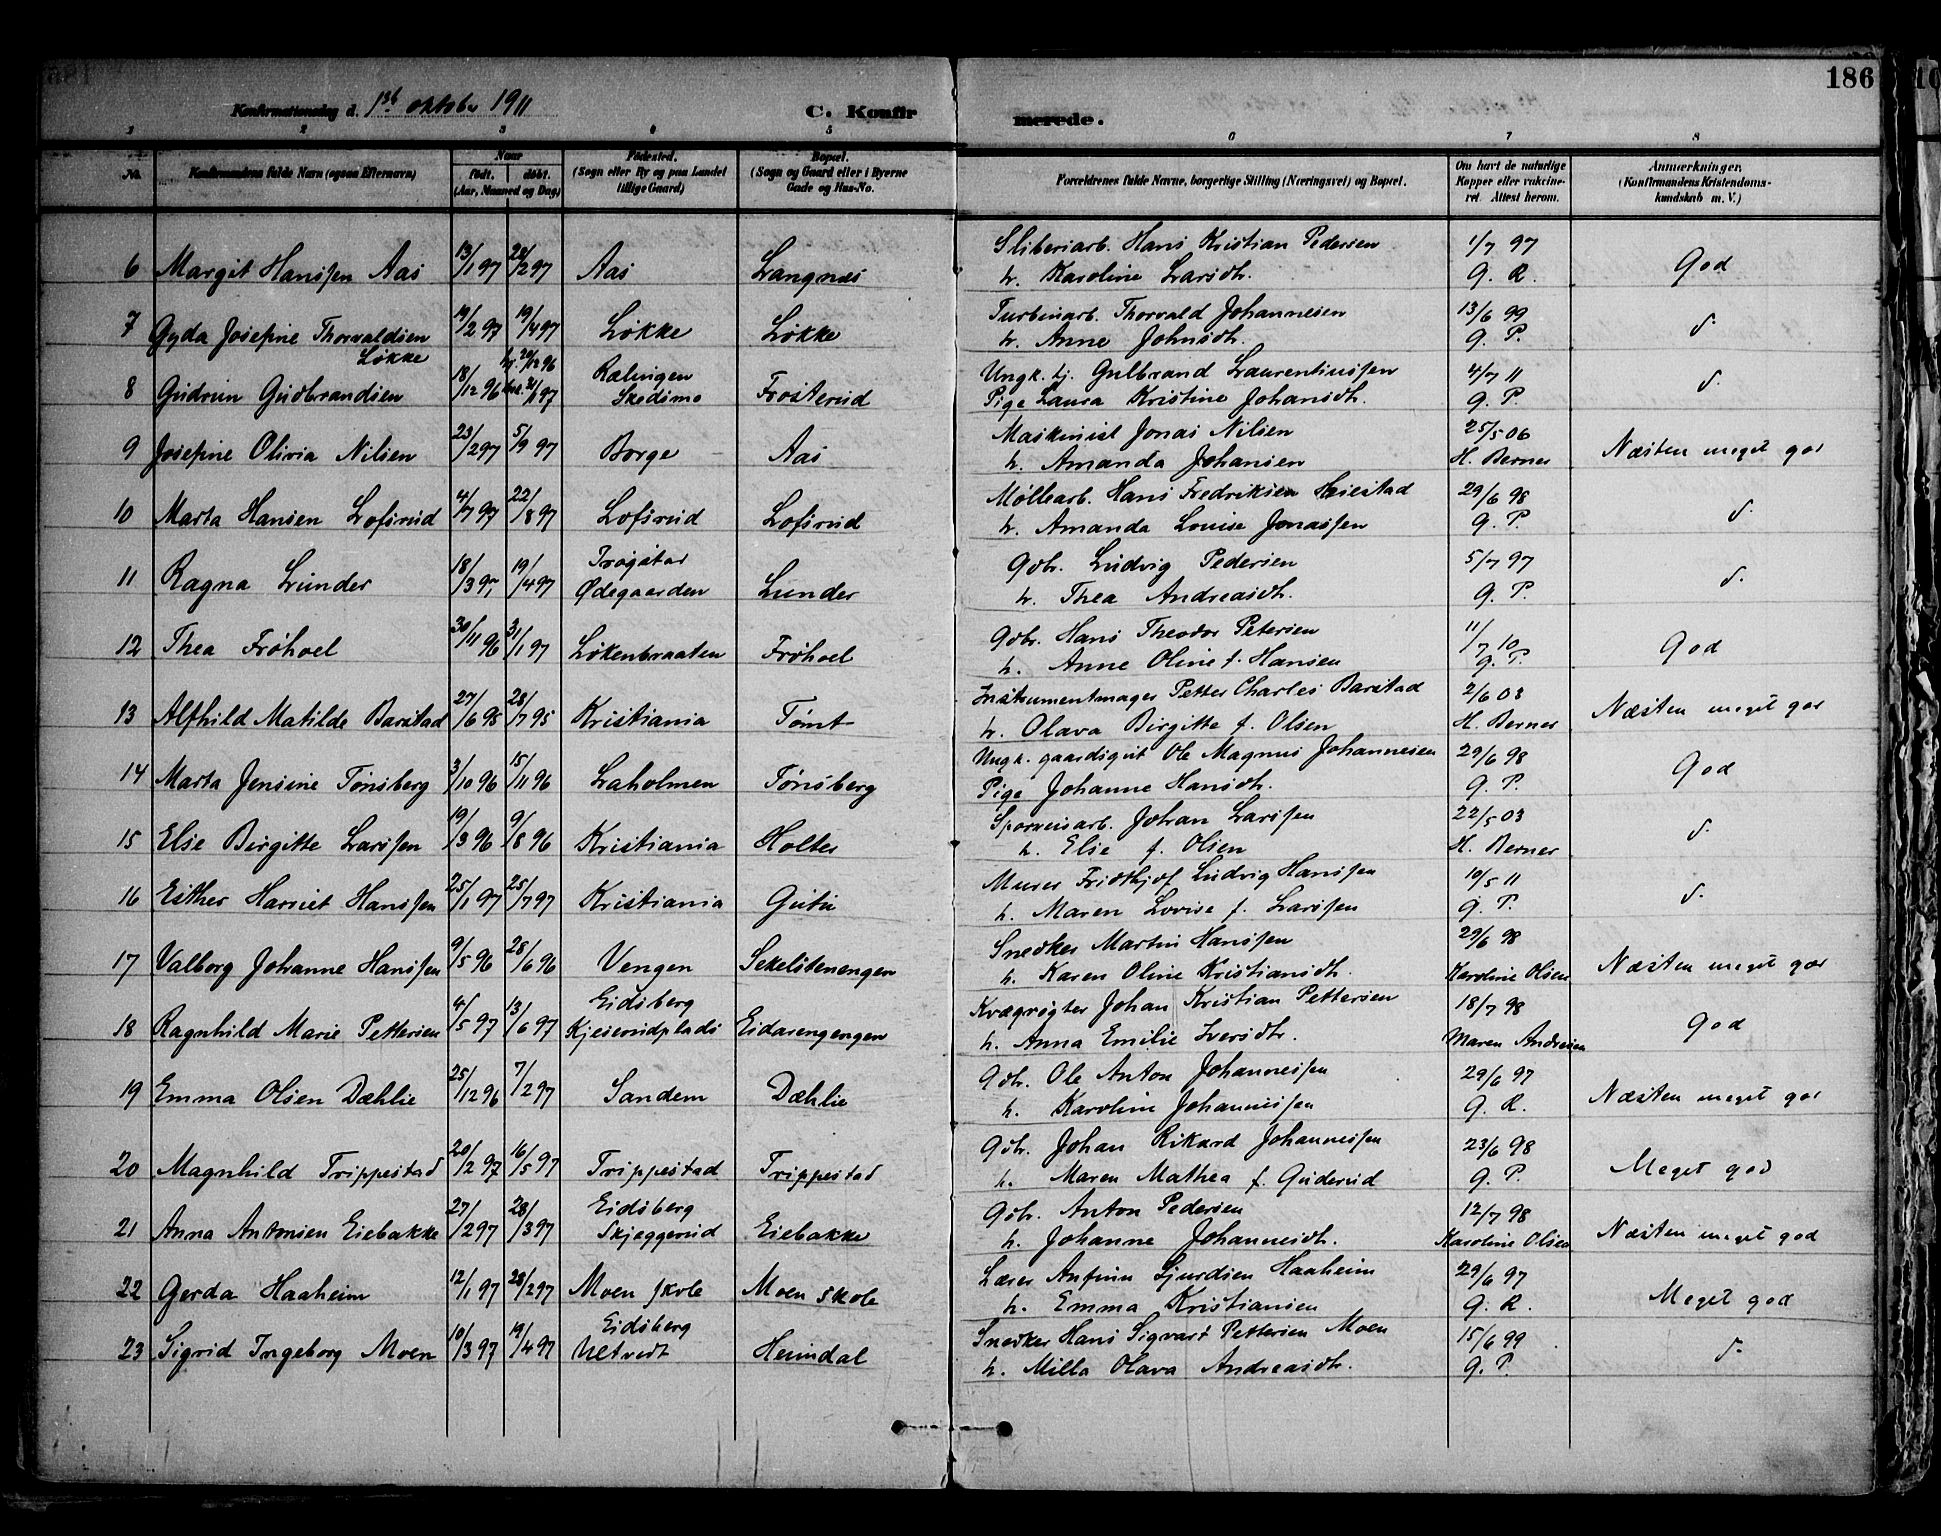 186
Konfirmationsdag d. 1ste oktober 1911
C. Konfirmerede.
1 2 3 4 5 6 7 8
No. Konfirmandens fulde Navn (ogsaa Efternavn) Naar født. døbt. (Aar, Maaned og Dag) Fødested. (Sogn eller By og paa Landet tillige Gaard) Bopæl. (Sogn og Gaard eller i Byerne Gade og Hus-No. Forældrenes fulde Navne, borgerlige Stilling (Næringsvei) og Bopæl. Om havt de naturlige Kopper eller vakcineret. Attest herom. Anmærkninger. (Konfirmandens Kristendomskundskab m. V.)
6 Margit Hanssen Aas 13/1 97 28/2 97 Aas Langnæs Sliberiarb. Hans Kristian Pedersen 1/7 97 God
h. Karoline Larsdtr. G. R.
7 Gyda Josefine Thorvaldsen Løkke 14/2 97 19/4 97 Løkke Løkke Turbinarb. Thorvald Johannesen 13/6 99 d.
h. Anne Johnsdtr. G. P.
8 Gudrun Gudbrandsen 18/12 96 hj. 20/12 96 21/1 97 Rælingen Skedsmo Frosterud Ungk. tj. Gulbrand Laurentiussen 4/7 11 d.
Pige Laura Kristine Johansdtr. G. P.
9 Josefine Olivia Nilsen 23/2 97 5/9 97 Borge Aas Maskinist Jonas Nilsen 25/5 06 Næsten meget god
h. Amanda Johansen H. Berner
10 Marta Hansen Lofsrud 4/7 97 22/8 97 Lofsrud Lofsrud Møllearb. Hans Fredriksen Heiestad 29/6 98 d.
h. Amanda Louise Jonassen G. P.
11 Ragna Lunder 18/3 97 19/4 97 Trøgstad Ødegaarden Lunder Gdbr. Ludvig Pedersen 5/7 97 d.
h. Thea Andreasdtr. G. P.
12 Thea Frøhoel 30/11 96 31/1 97 Løkenbraaten Frøhoel Gdbr. Hans Theodor Petersen 11/7 10 God
h. Anne Oline f. Hansen G. P.
13 Alfhild Matilde Barstad 27/6 95 28/7 95 Kristiania Tømt Instrumentmager Petter Charles Barstad 2/6 03 Næsten meget god
h. Olava Birgitte f. Olsen H. Berner
14 Marta Jensine Tønsberg 3/10 96 15/11 96 Laholmen Tønsberg Ungk. gaardsgut Ole Magnus Johannesen 29/6 98 God
Pige Johanne Hansdtr. G. P.
15 Else Birgitte Larssen 19/3 96 9/8 96 Kristiania Holter Sporveisarb. Johan Larssen 22/5 03 d.
h. Elise f. Olsen H. Berner
16 Esther Harriet Hanssen 25/1 97 25/7 97 Kristiania Gutu Murer Fridthjof Ludvig Hanssen 10/5 11 d.
h. Maren Lovise f. Larssen G. P.
17 Valborg Johanne Hanssen 9/5 96 28/6 96 Vengen Sekelstenengen Snedker Martin Hanssen 29/6 98 Næsten meget god
h. Karen Oline Kristiansdtr. Karoline Olsen
18 Ragnhild Marie Pettersen 4/5 97 13/6 97 Eidsberg Kjeserudplads Eidarengengen Kvægrøgter Johan Kristian Pettersen 18/7 98 God
h. Anna Emilie Iversdtr. Maren Andresen
19 Emma Olsen Dæhlie 25/12 96 7/2 97 Sandem Dæhlie Gdbr. Ole Anton Johannessen 29/6 97 Næsten meget god
h. Karoline Johannessen G. R.
20 Magnhild Trippestad 20/2 97 16/5 97 Trippestad Trippestad Gdbr. Johan Rikard Johannessen 23/6 98 Meget god
h. Maren Mathea f. Guderud G. P.
21 Anna Antonsen Eiebakke 27/2 97 28/3 97 Eidsberg Skjeggerud Eiebakke Gdbr. Anton Pedersen 12/7 98 Næsten meget god
h. Johanne Johannesdtr. Karoline Olsen
22 Gerda Haaheim 12/1 97 28/2 97 Moen skole Moen skole Lærer Anfinn Sjurdsen Haaheim 29/6 97 Meget god
h. Emma Kristiansen G. R.
23 Sigrid Ingeborg Moen 10/3 97 19/4 97 Eidsberg Ultvedt Heimdal Snedker Hans Sigvart Pettersen Moen 15/6 99 d.
h. Milla Olava Andreasdtr. G. P.